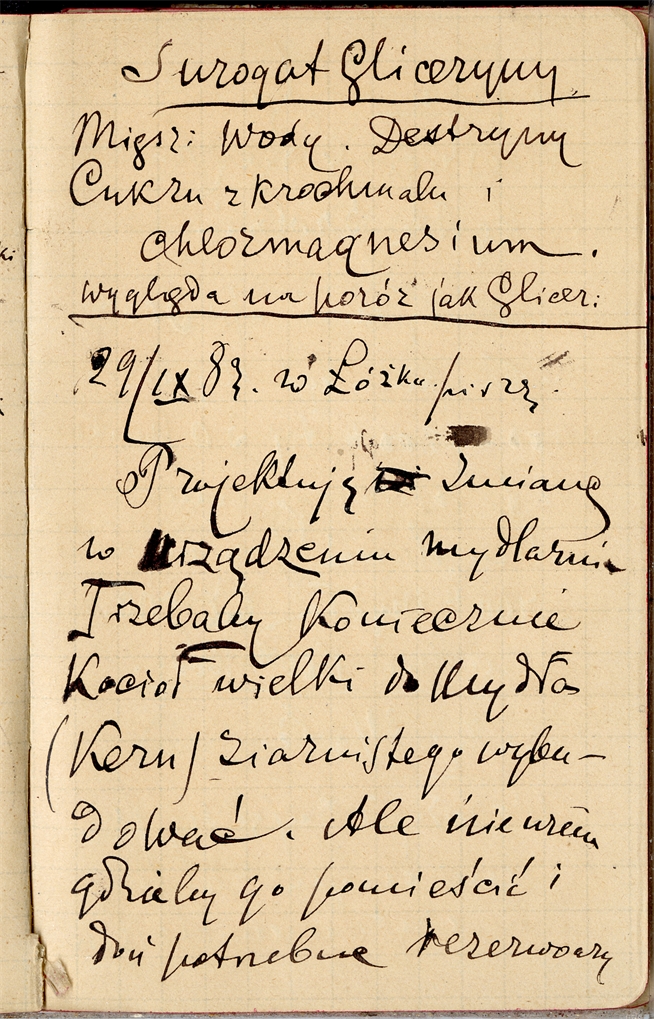 Surogat Gliceryny
Mięsz: Wody. Dextryny
Cukru z krochmalu i
chlormagnesium.
wygląda na pozór jak Glicer:
29/IX 83. w Łóżku piszę.
Projektuję zmianę
w urządzeniu mydlarni
Trzebaby Koniecznie
Kocioł wielki do Mydła
(Kern) ziarnistego wybu-
dować. Ale nie wiem
gdzieby go pomieścić i
doń potrzebne rezerwoary